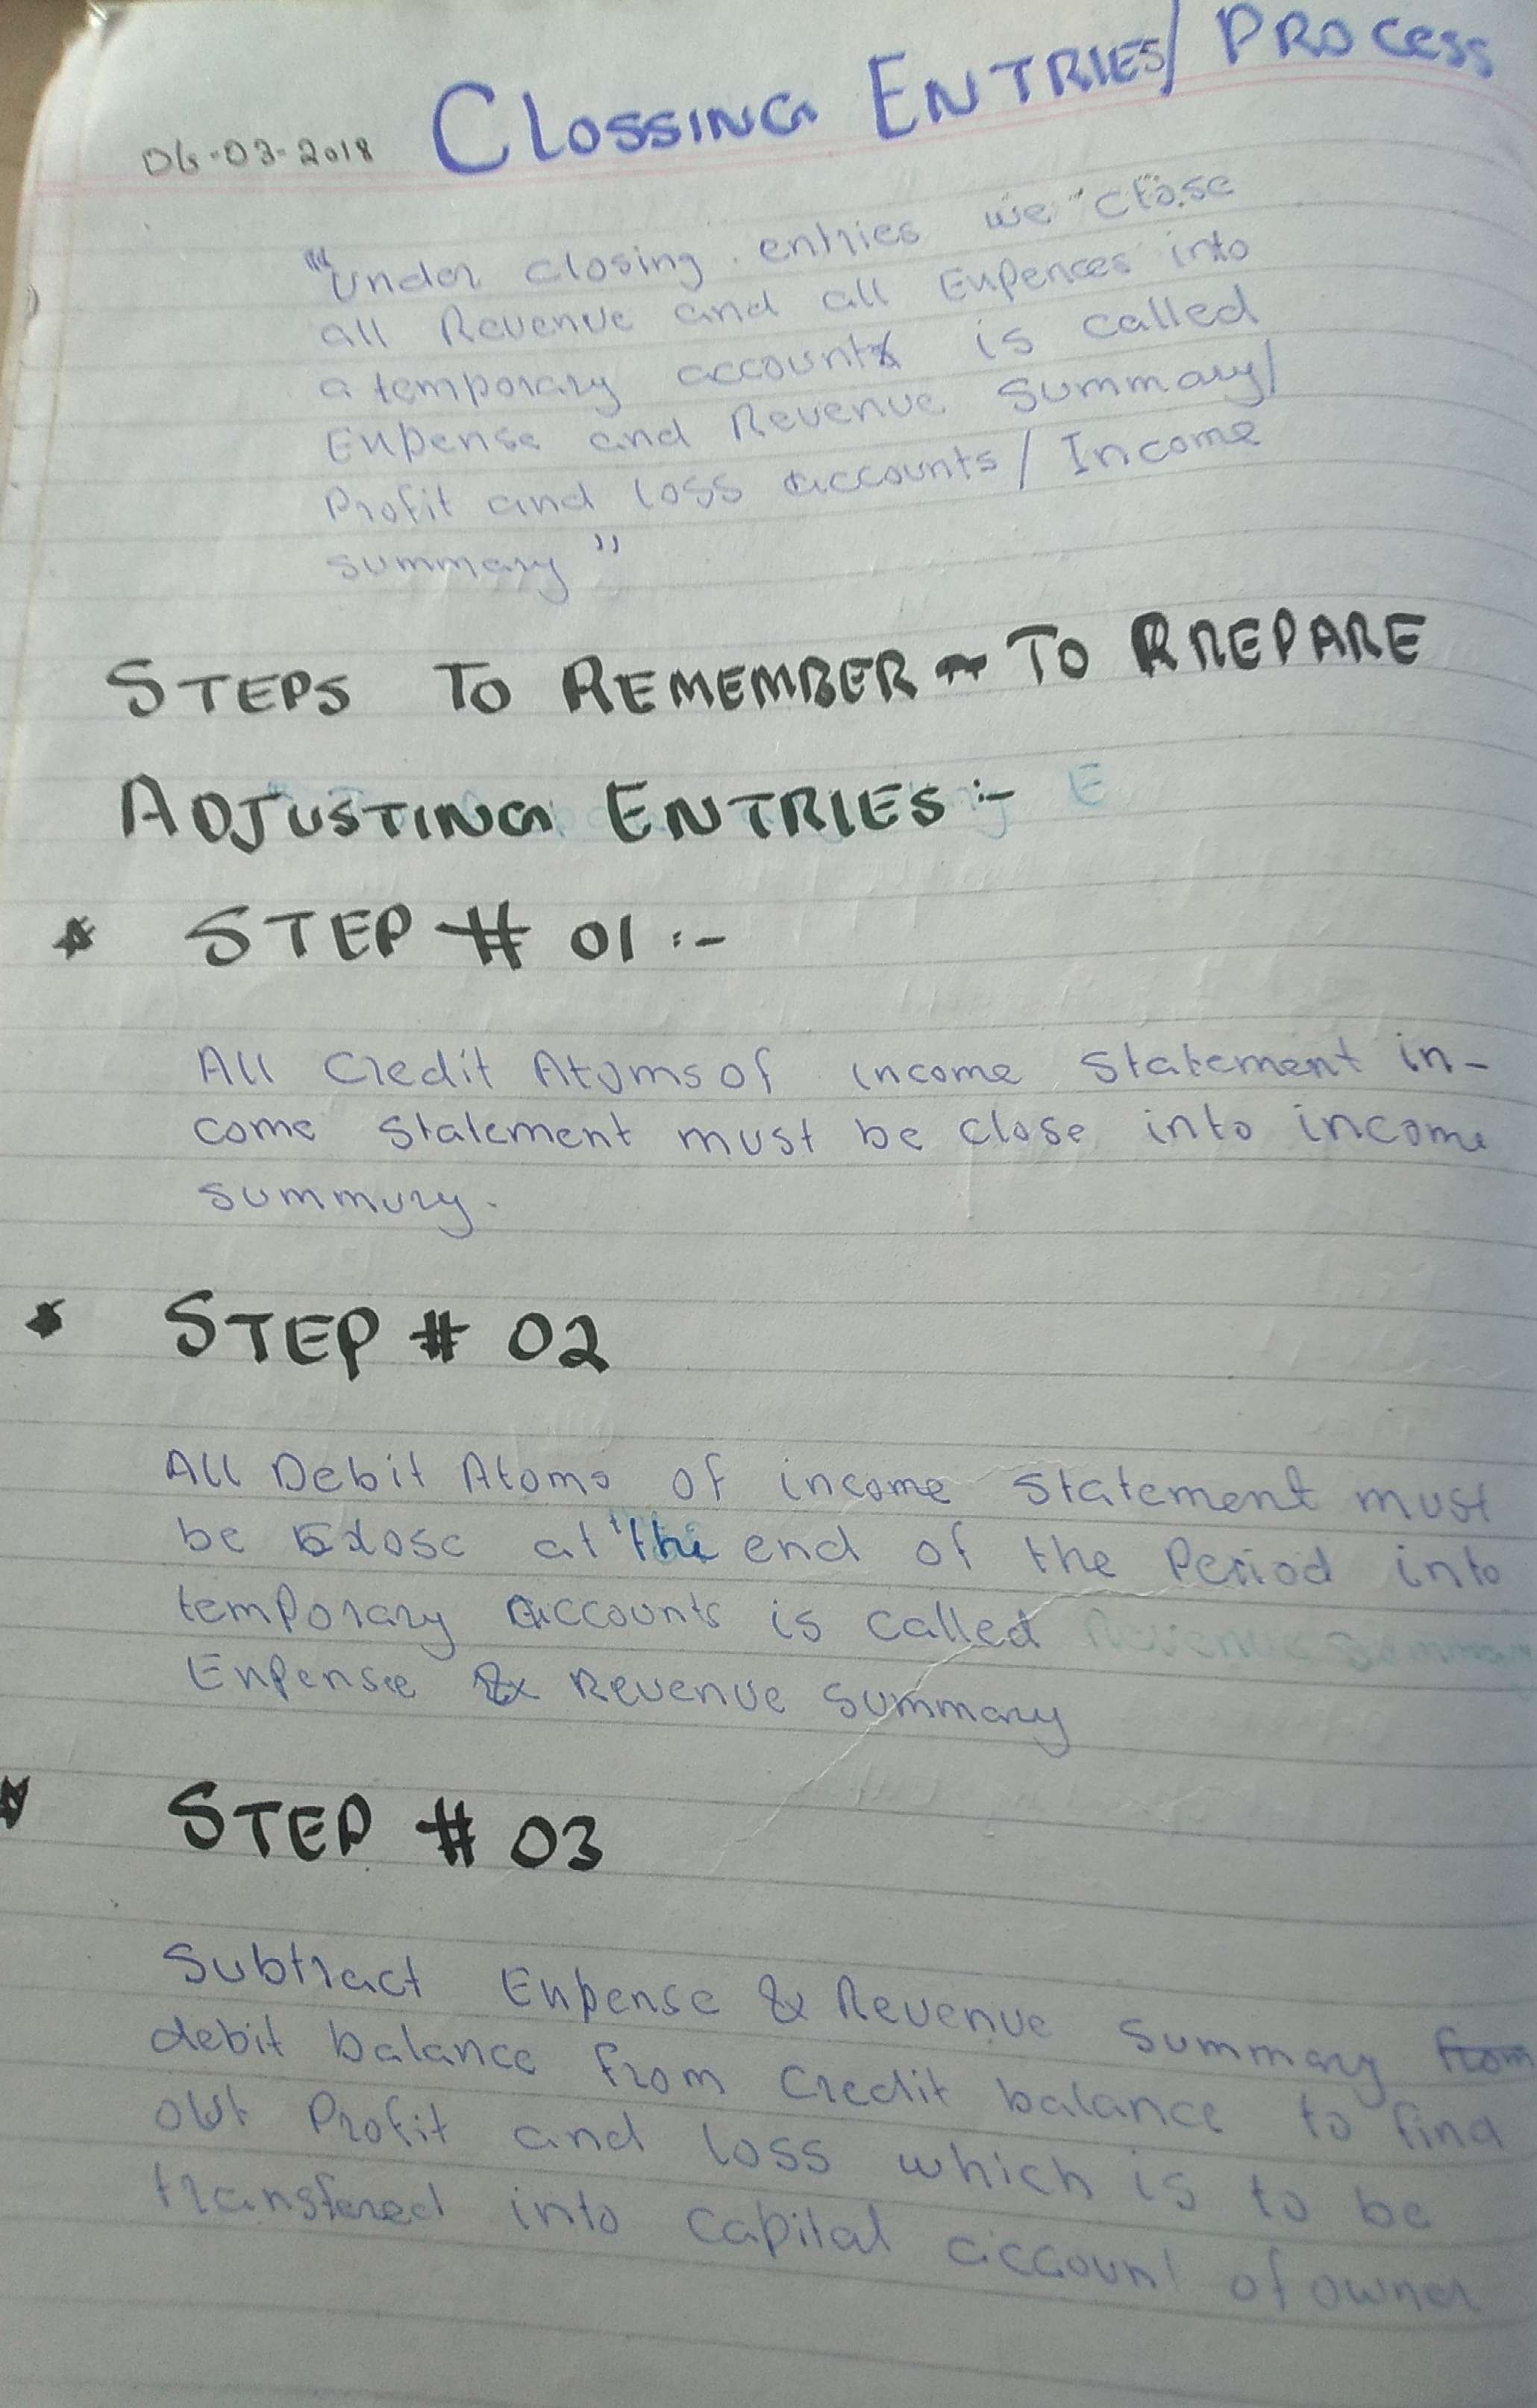 CLOSSING ENTRIES/ PROCESS
06-03-2018
"Under closing entries we close
all Revenue and all Expences into
a temporary account is called
Expense and Revenue Summary/
Profit and loss accounts/ Income
summary"
STEPS TO REMEMBER ~ TO PREPARE
ADJUSTING ENTRIES:-
* STEP # 01:-
All Credit Atoms of income statement in-
come statement must be close into income
summury.
* STEP # 02
All Debit Atoms of income statement must
be close at the end of the Period into
temporary accounts is called Revenue Summary
Expense & Revenue summary
* STEP # 03
Subtract Expense & Revenue summary from
debit balance from credit balance to find
out Profit and loss which is to be
transfered into capital account of owner